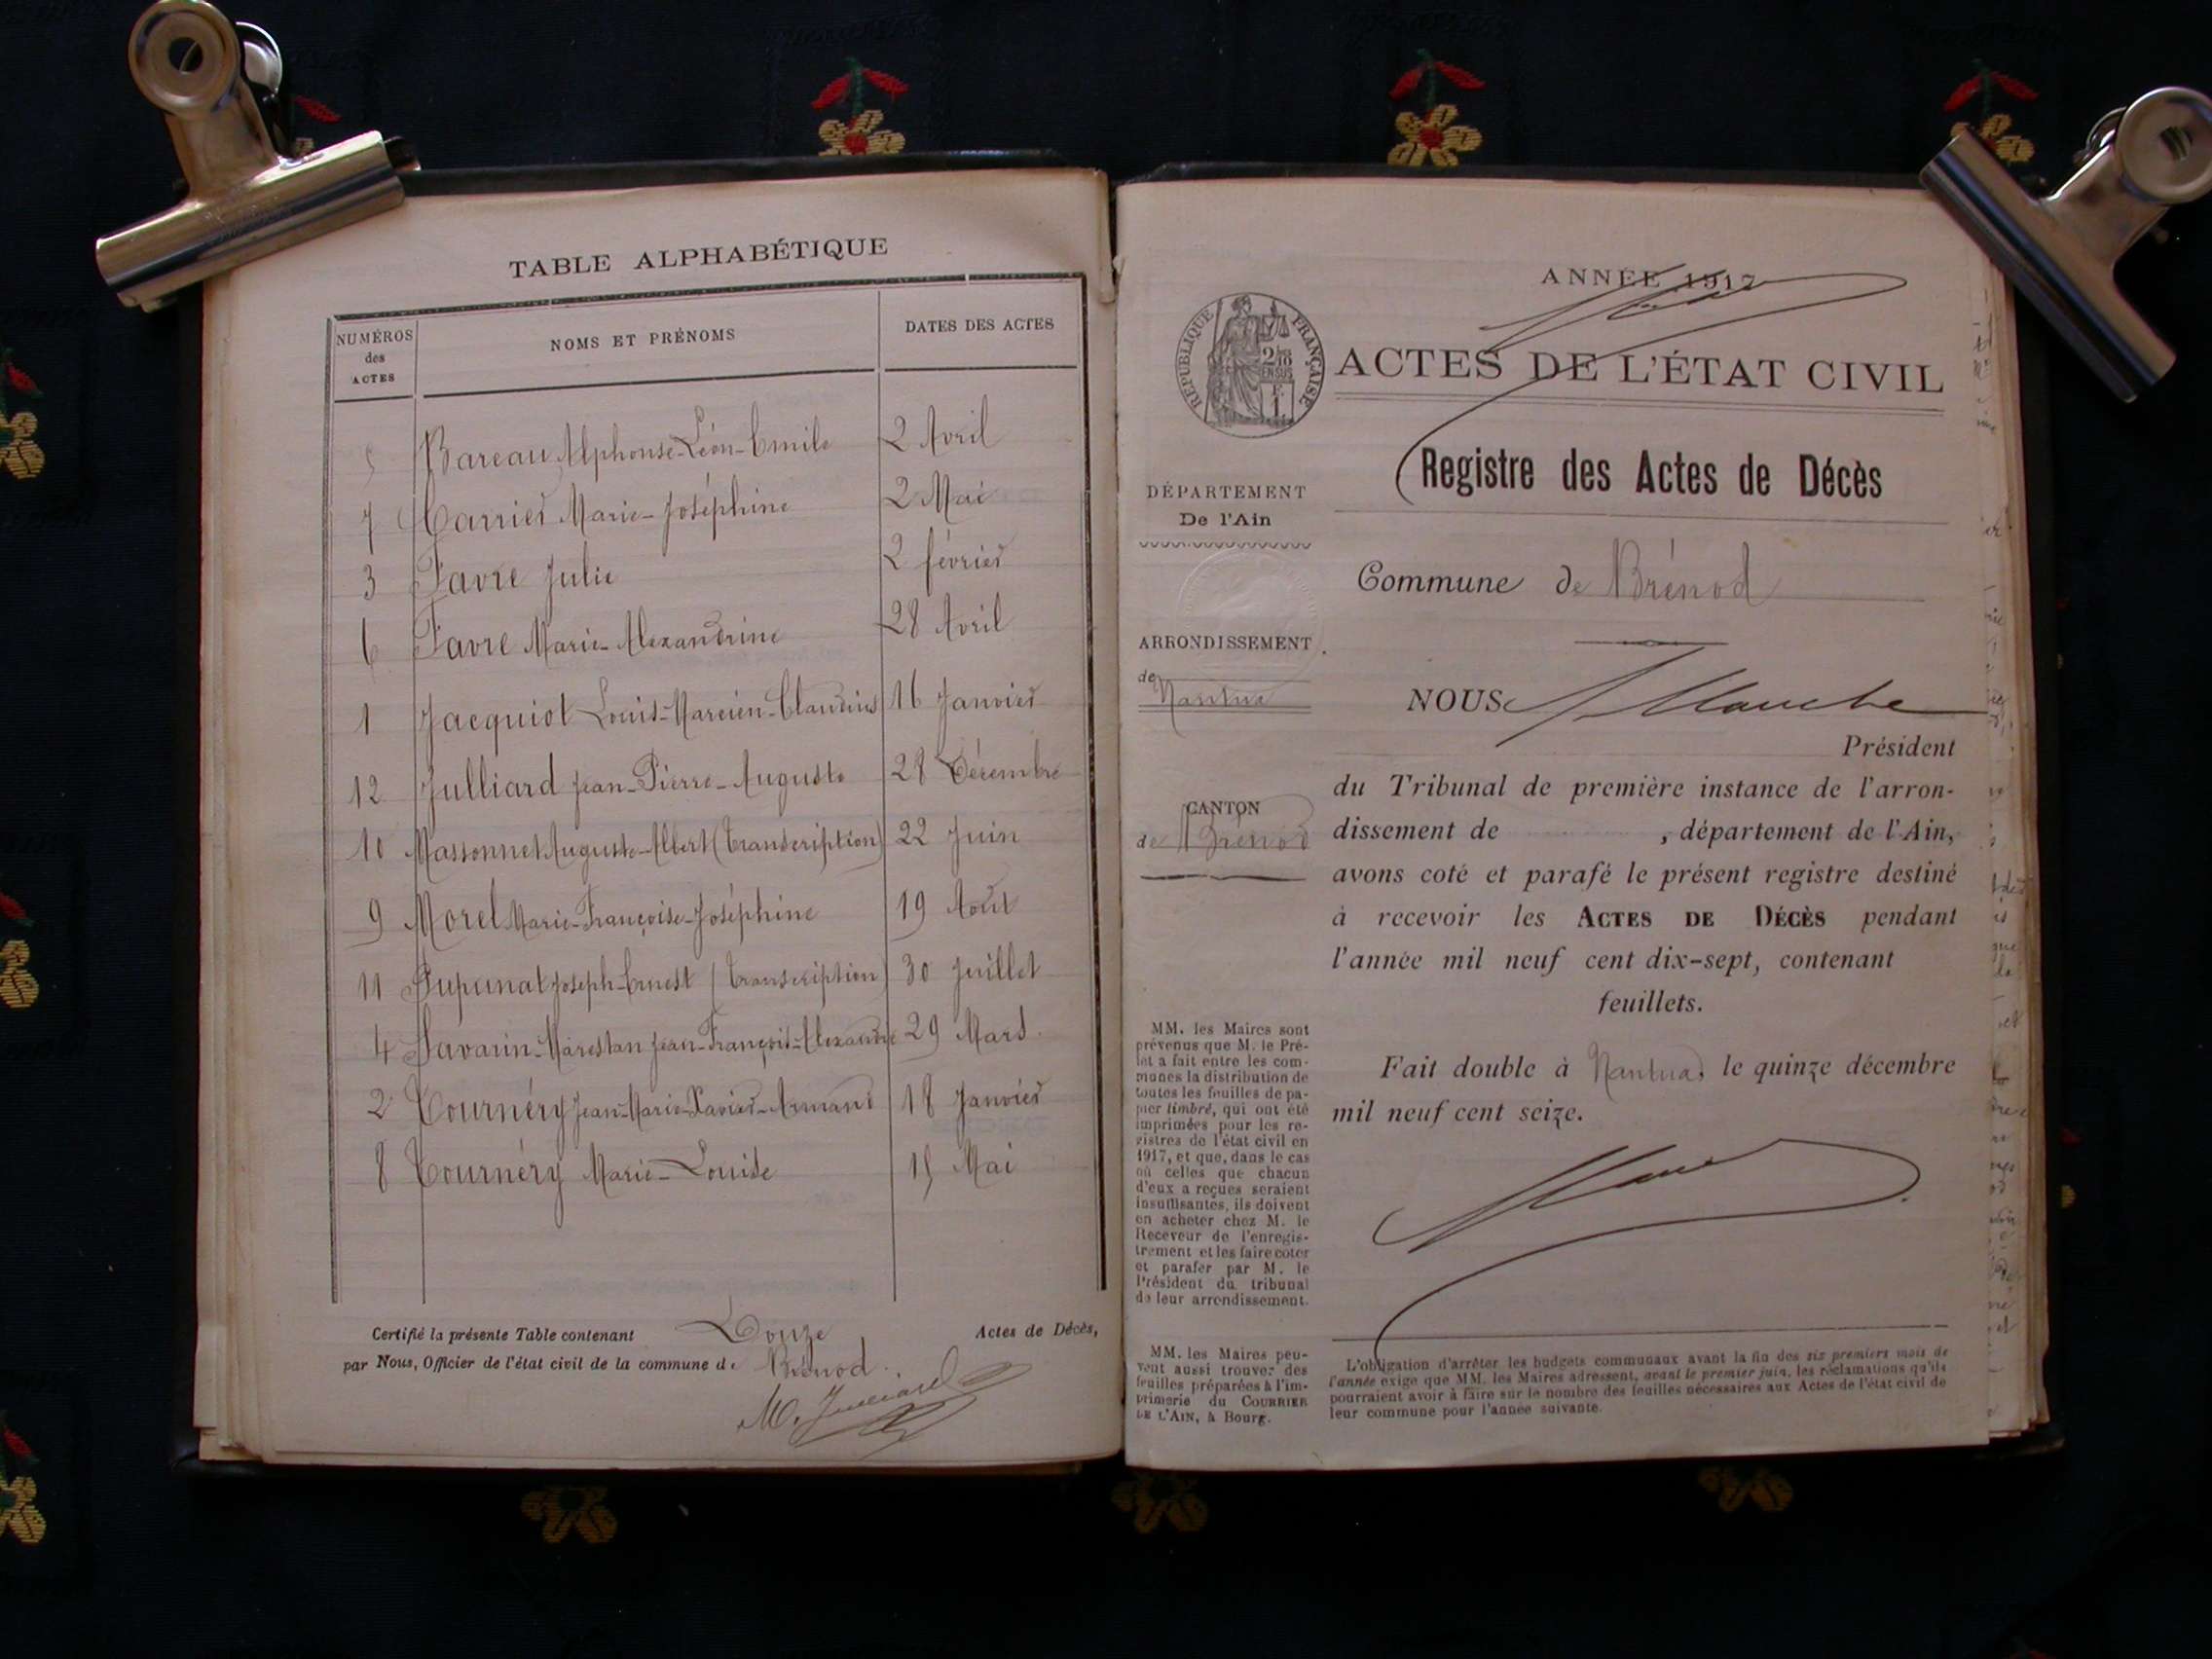 TABLE ALPHABÉTIQUE
NUMÉROS des ACTES NOMS ET PRÉNOMS DATES DES ACTES
5 Bareau Alphonse-Léon-Emile 2 Avril
7 Carrier Marie-Joséphine 2 Mai
3 Favre Julie 2 février
6 Favre Marie-Alexandrine 28 Avril
1 Jacquiot Louis-Marcien-Claudius 16 Janvier
12 Julliard Jean-Pierre-Auguste 28 Décembre
10 Massonnet Auguste-Albert (Transcription) 22 Juin
9 Morel Marie-Françoise-Joséphine 19 Août
11 Pupunat Joseph-Ernest (Transcription) 30 Juillet
4 Savarin-Marestan Jean-François-Alexandre 29 Mars
2 Tournéry Jean-Marie-Xavier-Armand 18 Janvier
8 Tournéry Marie-Louise 15 Mai
Certifié la présente Table contenant Douze Actes de Décès,
par Nous, Officier de l'état civil de la commune de Brénod.
M. Julliard
ANNÉE 1917
RÉPUBLIQUE FRANÇAISE
ACTES DE L'ÉTAT CIVIL
Registre des Actes de Décès
DÉPARTEMENT
De l'Ain
Commune de Brénod
ARRONDISSEMENT
de Nantua
NOUS
Président
du Tribunal de première instance de l'arron-
CANTON
de Brénod
dissement de , département de l'Ain,
avons coté et parafé le présent registre destiné
à recevoir les ACTES DE DÉCÈS pendant
l'année mil neuf cent dix-sept, contenant
feuillets.
Fait double à Nantua, le quinze décembre
mil neuf cent seize.
MM. les Maires sont
prévenus que M. le Pré-
fet a fait entre les com-
munes la distribution de
toutes les feuilles de pa-
pier timbré, qui ont été
imprimées pour les re-
gistres de l'état civil en
1917, et que, dans le cas
où celles que chacun
d'eux a reçues seraient
insuffisantes, ils doivent
en acheter chez M. le
Receveur de l'enregis-
trement et les faire coter
et parafer par M. le
Président du tribunal
de leur arrondissement.
MM. les Maires peu-
vent aussi trouver des
feuilles préparées à l'im-
primerie du COURRIER
DE L'AIN, à Bourg.
L'obligation d'arrêter les budgets communaux avant la fin des six premiers mois de
l'année exige que MM. les Maires adressent, avant le premier juin, les réclamations qu'ils
pourraient avoir à faire sur le nombre des feuilles nécessaires aux Actes de l'état civil de
leur commune pour l'année suivante.